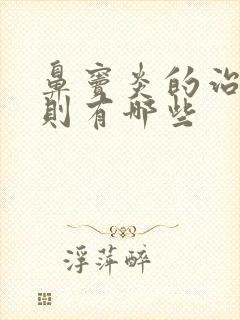 鼻窦炎的治
則有哪些
浮萍醉